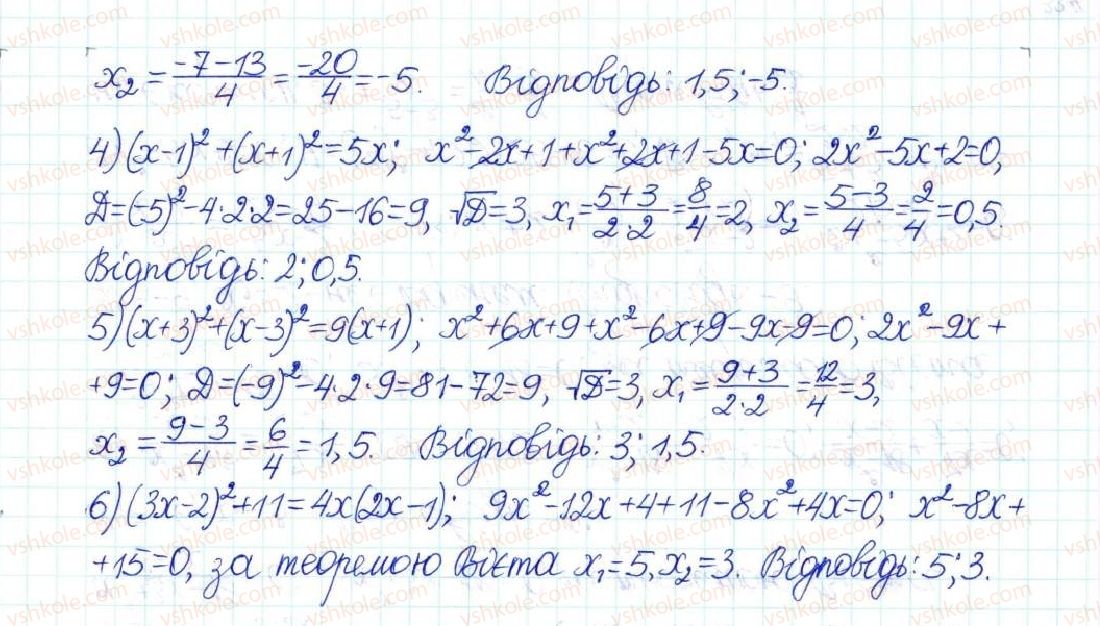 x₂ = (-7-13)/4 = -20/4 = -5. Відповідь: 1,5; -5.
4) (x-1)² + (x+1)² = 5x; x² - 2x + 1 + x² + 2x + 1 - 5x = 0; 2x² - 5x + 2 = 0,
D = (-5)² - 4·2·2 = 25 - 16 = 9, √D = 3, x₁ = (5+3)/(2·2) = 8/4 = 2, x₂ = (5-3)/4 = 2/4 = 0,5.
Відповідь: 2; 0,5.
5) (x+3)² + (x-3)² = 9(x+1); x² + 6x + 9 + x² - 6x + 9 - 9x - 9 = 0; 2x² - 9x +
+ 9 = 0; D = (-9)² - 4·2·9 = 81 - 72 = 9, √D = 3, x₁ = (9+3)/(2·2) = 12/4 = 3,
x₂ = (9-3)/4 = 6/4 = 1,5. Відповідь: 3; 1,5.
6) (3x-2)² + 11 = 4x(2x-1); 9x² - 12x + 4 + 11 - 8x² + 4x = 0; x² - 8x +
+ 15 = 0, за теоремою Вієта x₁ = 5, x₂ = 3. Відповідь: 5; 3.
vshkole.com